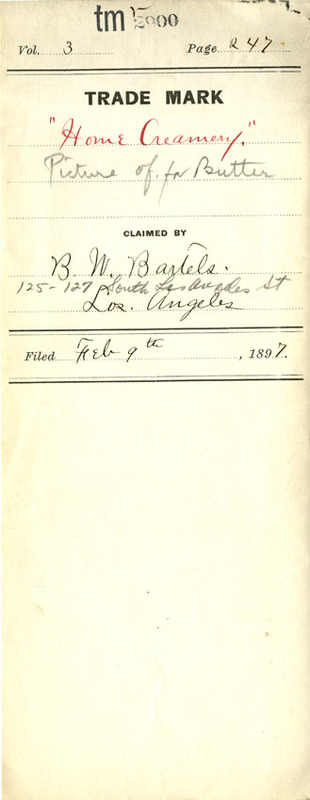 tm 2900
Vol. 3 Page 247
TRADE MARK
"Home Creamery."
Picture of. for Butter
CLAIMED BY
B. W. Bartels.
125-127 South Los Angeles St
Los. Angeles
Filed Feb 9th, 1897.